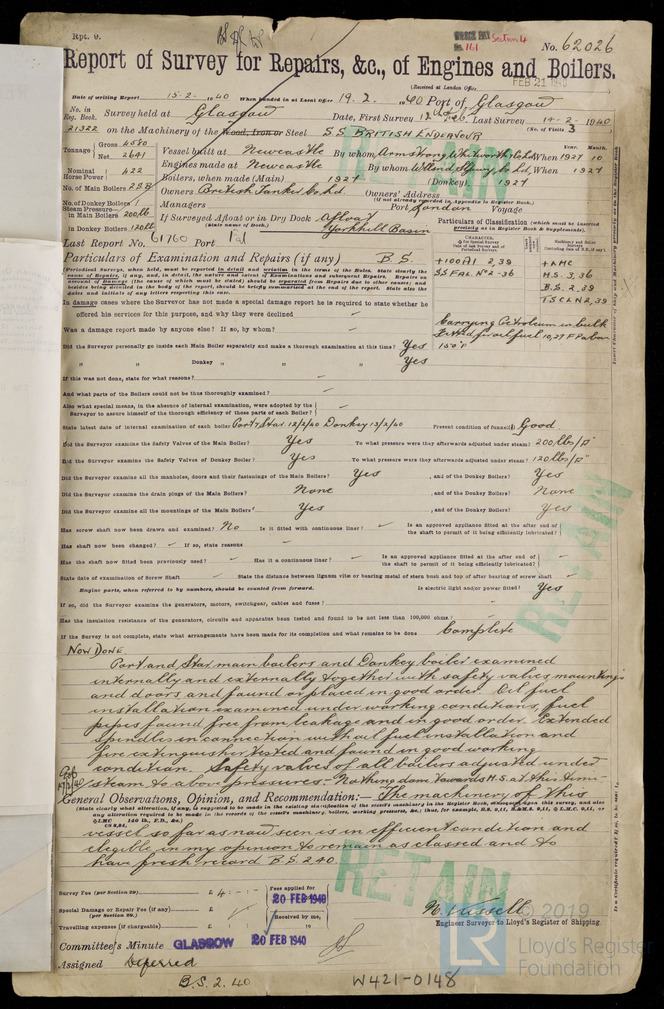 Rpt. 9.
WRECK REP
No. 161
Section 4
No. 62026
Report of Survey for Repairs, &c., of Engines and Boilers.
(Received at London Office
FEB 21 1940
Date of writing Report 15-2- 1940 When handed in at Local Office 19.2. 1940 Port of Glasgow
No. in Reg. Book. Survey held at Glasgow Date, First Survey 12th Feb. Last Survey 14-2-1940
21322 on the Machinery of the Wood, Iron or Steel SS BRITISH ENDEAVOUR (No. of Visits 3
Tonnage Gross 4580 Net 2641
Vessel built at Newcastle By whom Armstrong Whitworth & Co Ld When 1927 10
Nominal Horse Power 422
Engines made at Newcastle By whom When 1927
No. of Main Boilers 2SB
Boilers, when made (Main) 1927 (Donkey) 1927
No. of Donkey Boilers 1
Owners British Tanker Co Ld. Owners' Address
(If not already recorded in Appendix to Register Book.)
Steam Pressure in Main Boilers 200lb
Managers Port London Voyage
in Donkey Boilers 120lb
If Surveyed Afloat or in Dry Dock Afloat
(State name of Dock.) Yorkhill Basin
Particulars of Classification (which must be inserted precisely as in Register Book & Supplements).
Last Report No. 61760 Port
Particulars of Examination and Repairs (if any) B.S.
+100A1 2,39
SS FAL No 2-36
+LMC
H.S. 3,36
B.S. 2,39
TS CLN 2,39
Carrying Petroleum in bulk
Fitted for oil fuel 10,27 F.P. above 150°F
In damage cases where the Surveyor has not made a special damage report he is required to state whether he
offered his services for this purpose, and why they were declined
Was a damage report made by anyone else? If so, by whom?
Did the Surveyor personally go inside each Main Boiler separately and make a thorough examination at this time? Yes
" " Donkey " " " Yes
If this was not done, state for what reasons?
And what parts of the Boilers could not be thus thoroughly examined?
Also what special means, in the absence of internal examination, were adopted by the
Surveyor to assure himself of the thorough efficiency of these parts of each Boiler?
State latest date of internal examination of each boiler Port & Star. 12/2/40 Donkey 13/2/40 Present condition of funnel(s) Good
Did the Surveyor examine the Safety Valves of the Main Boiler? Yes To what pressure were they afterwards adjusted under steam? 200 lbs/□"
Did the Surveyor examine the Safety Valves of Donkey Boiler? Yes To what pressure were they afterwards adjusted under steam? 120 lbs/□"
Did the Surveyor examine all the manholes, doors and their fastenings of the Main Boilers? Yes , and of the Donkey Boilers? Yes
Did the Surveyor examine the drain plugs of the Main Boilers? None , and of the Donkey Boilers? None
Did the Surveyor examine all the mountings of the Main Boilers? Yes , and of the Donkey Boilers? Yes
Has screw shaft now been drawn and examined? No Is it fitted with continuous liner? Is an approved appliance fitted at the after end of the shaft to permit of it being efficiently lubricated?
Has shaft now been changed? If so, state reasons
Has the shaft now fitted been previously used? Has it a continuous liner? Is an approved appliance fitted at the after end of the shaft to permit of it being efficiently lubricated?
State date of examination of Screw Shaft State the distance between lignum vitæ or bearing metal of stern bush and top of after bearing of screw shaft
Engine parts, when referred to by numbers, should be counted from forward. Is electric light and/or power fitted? Yes
If so, did the Surveyor examine the generators, motors, switchgear, cables and fuses?
Has the insulation resistance of the generators, circuits and apparatus been tested and found to be not less than 100,000 ohms?
If the Survey is not complete, state what arrangements have been made for its completion and what remains to be done Complete
NOW DONE
Port and Star main boilers and Donkey boiler examined
internally and externally together with safety valves mountings
and doors and found or placed in good order. Oil fuel
installation examined under working conditions, fuel
pipes found free from leakage and in good order. Extended
spindles in connection with oil fuel installation and
fire extinguisher tested and found in good working
condition. Safety valves of all boilers adjusted under
steam to above pressures. Nothing done towards H.S. at this time.
General Observations, Opinion, and Recommendation:— The machinery of this
vessel so far as now seen is in efficient condition and
eligible in my opinion to remain as classed and to
have fresh record B.S. 2.40.
Survey Fee (per Section 29) £ 4 : - : -
Fees applied for
20 FEB 1940
Special Damage or Repair Fee (if any) £
(per Section 29.)
Received by me,
Travelling expenses (if chargeable) £
N. Russell
Engineer Surveyor to Lloyd's Register of Shipping
Committee's Minute GLASGOW 20 FEB 1940
Assigned Deferred
B.S. 2. 40
W421-0148
RETAIN
RETAIN
RETAIN
© 2019
LR
Lloyd's Register
Foundation